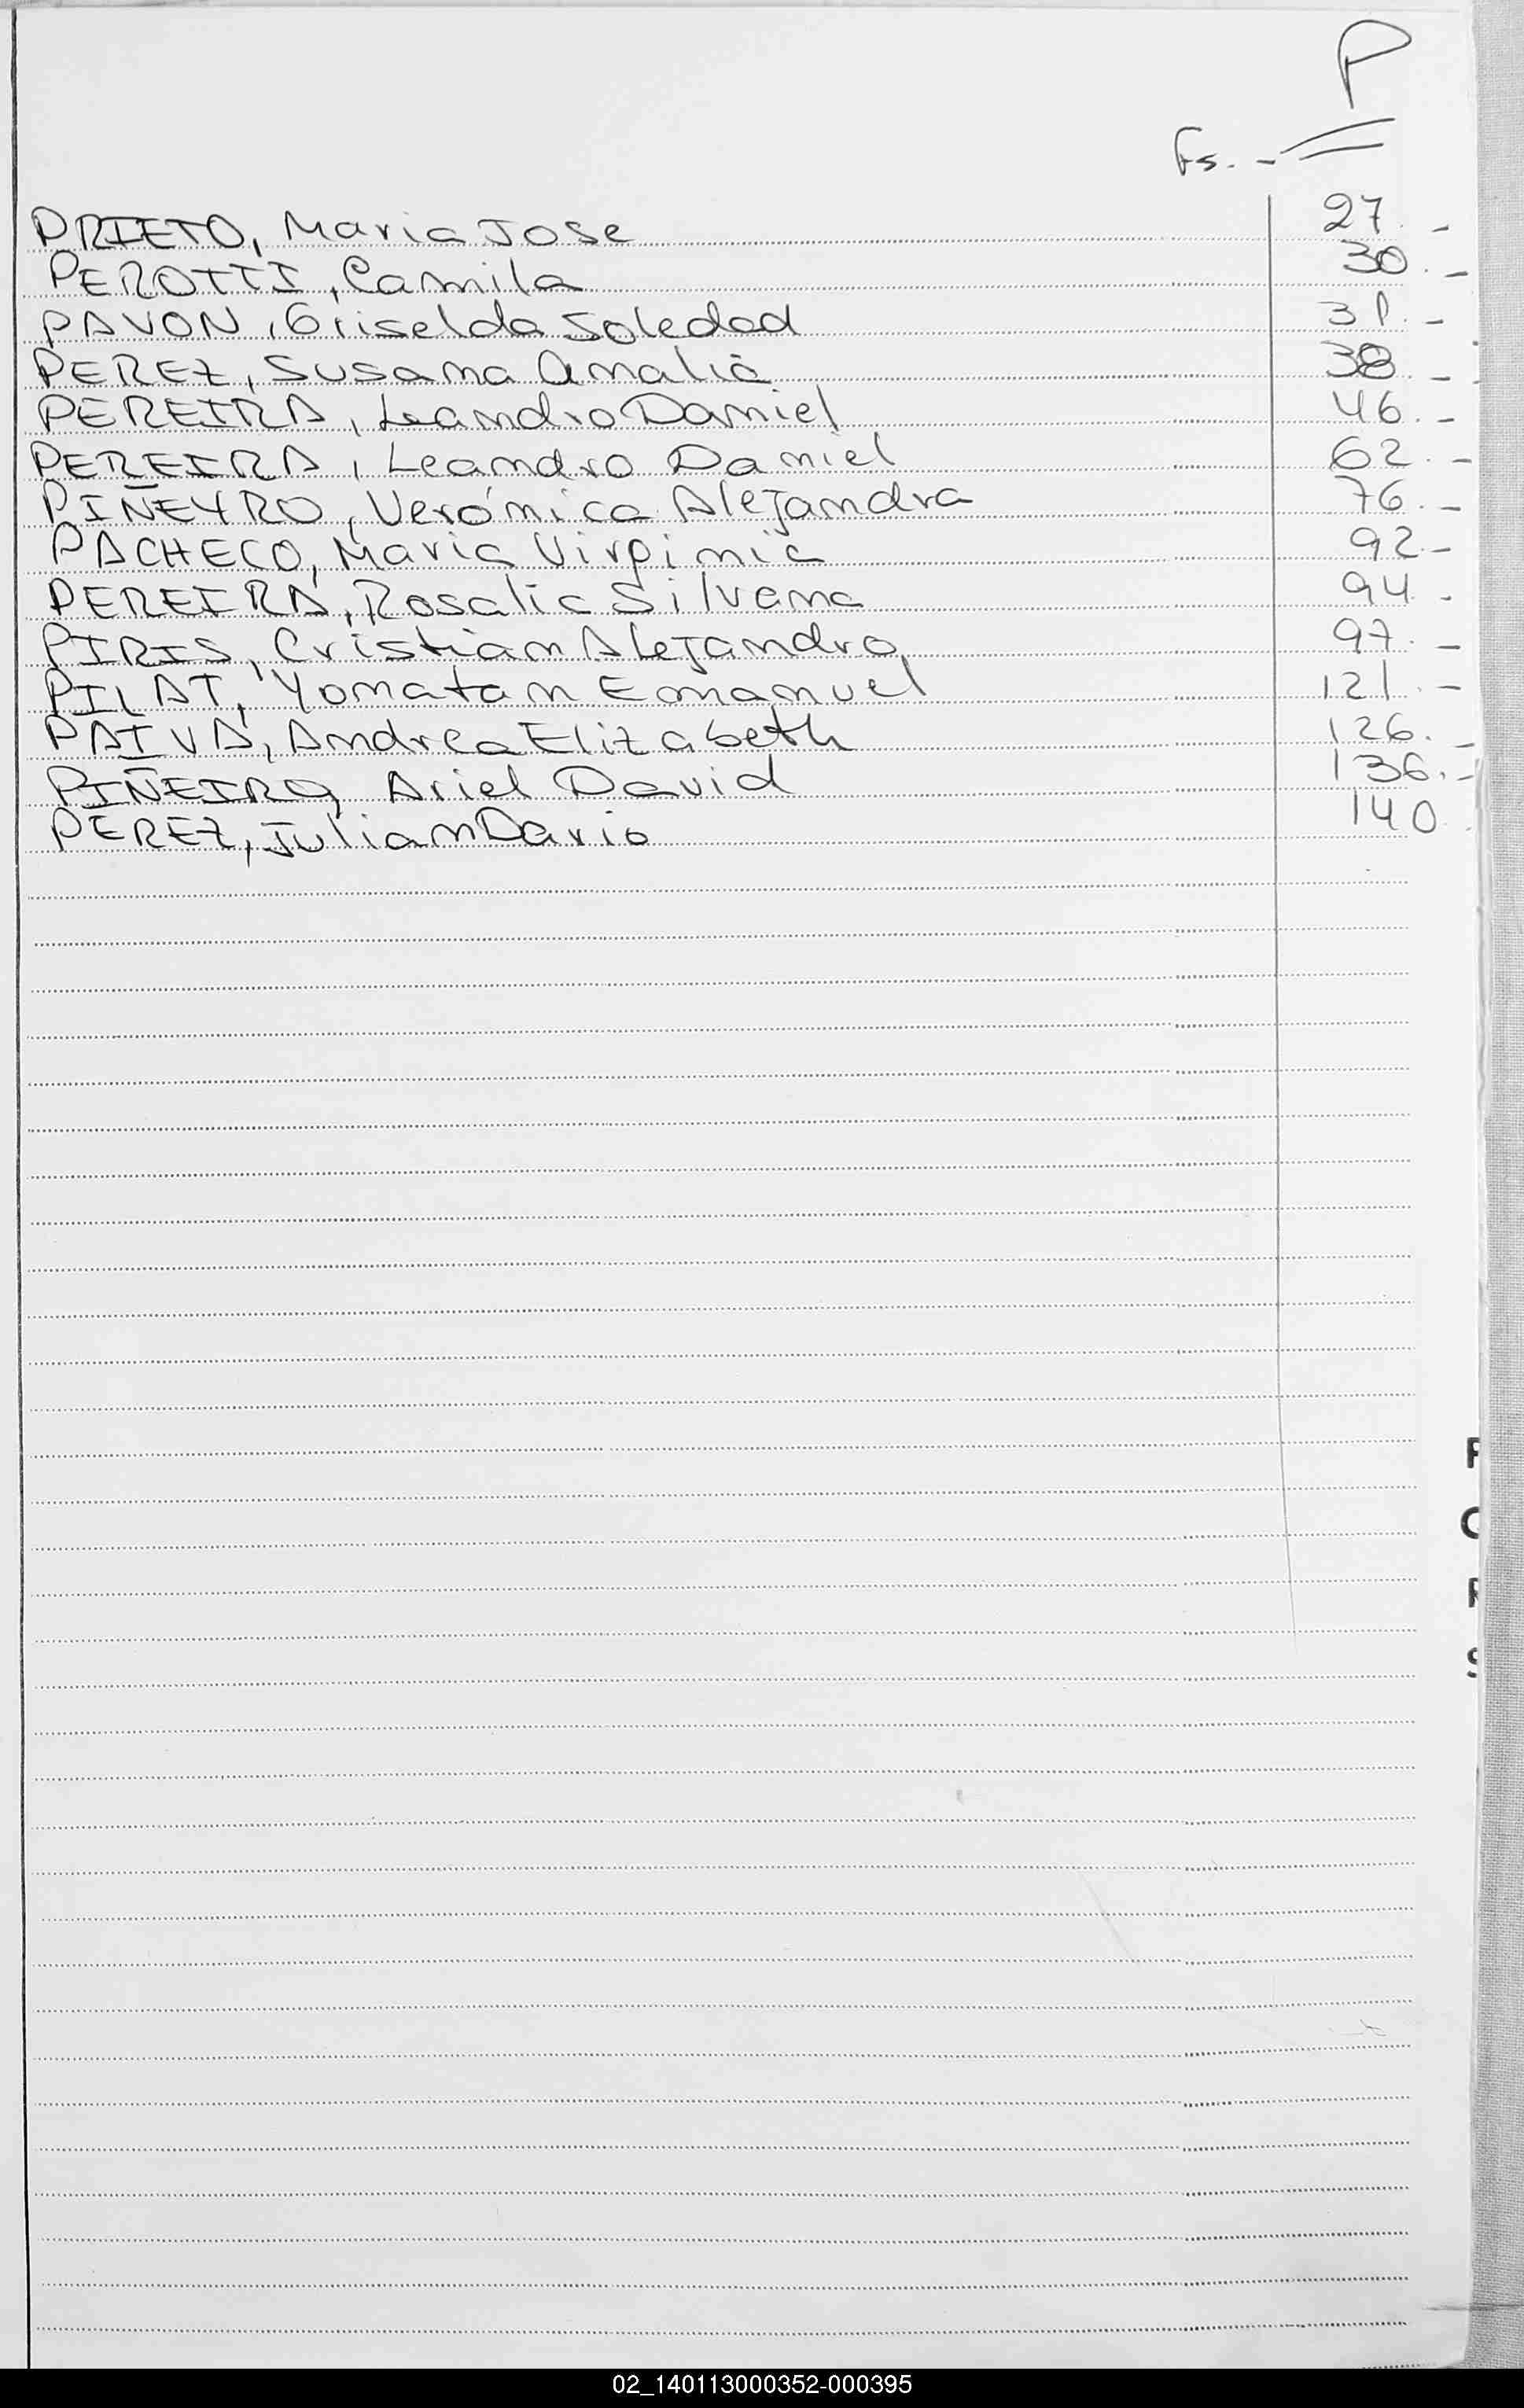 P
Fs. -
PRIETO, Maria Jose 27. -
PEROTTI, Camila 30. -
PAVON, Griselda Soledad 31. -
PEREZ, Susana Amalia 38. -
PEREIRA, Leandro Daniel 46. -
PEREIRA, Leandro Daniel 62. -
PIÑEYRO, Verónica Alejandra 76. -
PACHECO, Maria Virginia 92. -
PEREIRA, Rosalia Silvana 94. -
PIRIS, Cristian Alejandro 97. -
PILAT, Yonatan Emanuel 121. -
PAIVA, Andrea Elizabeth 126. -
PIÑEIRO, Ariel David 136. -
PEREZ, Julian Dario 140
02_140113000352-000395